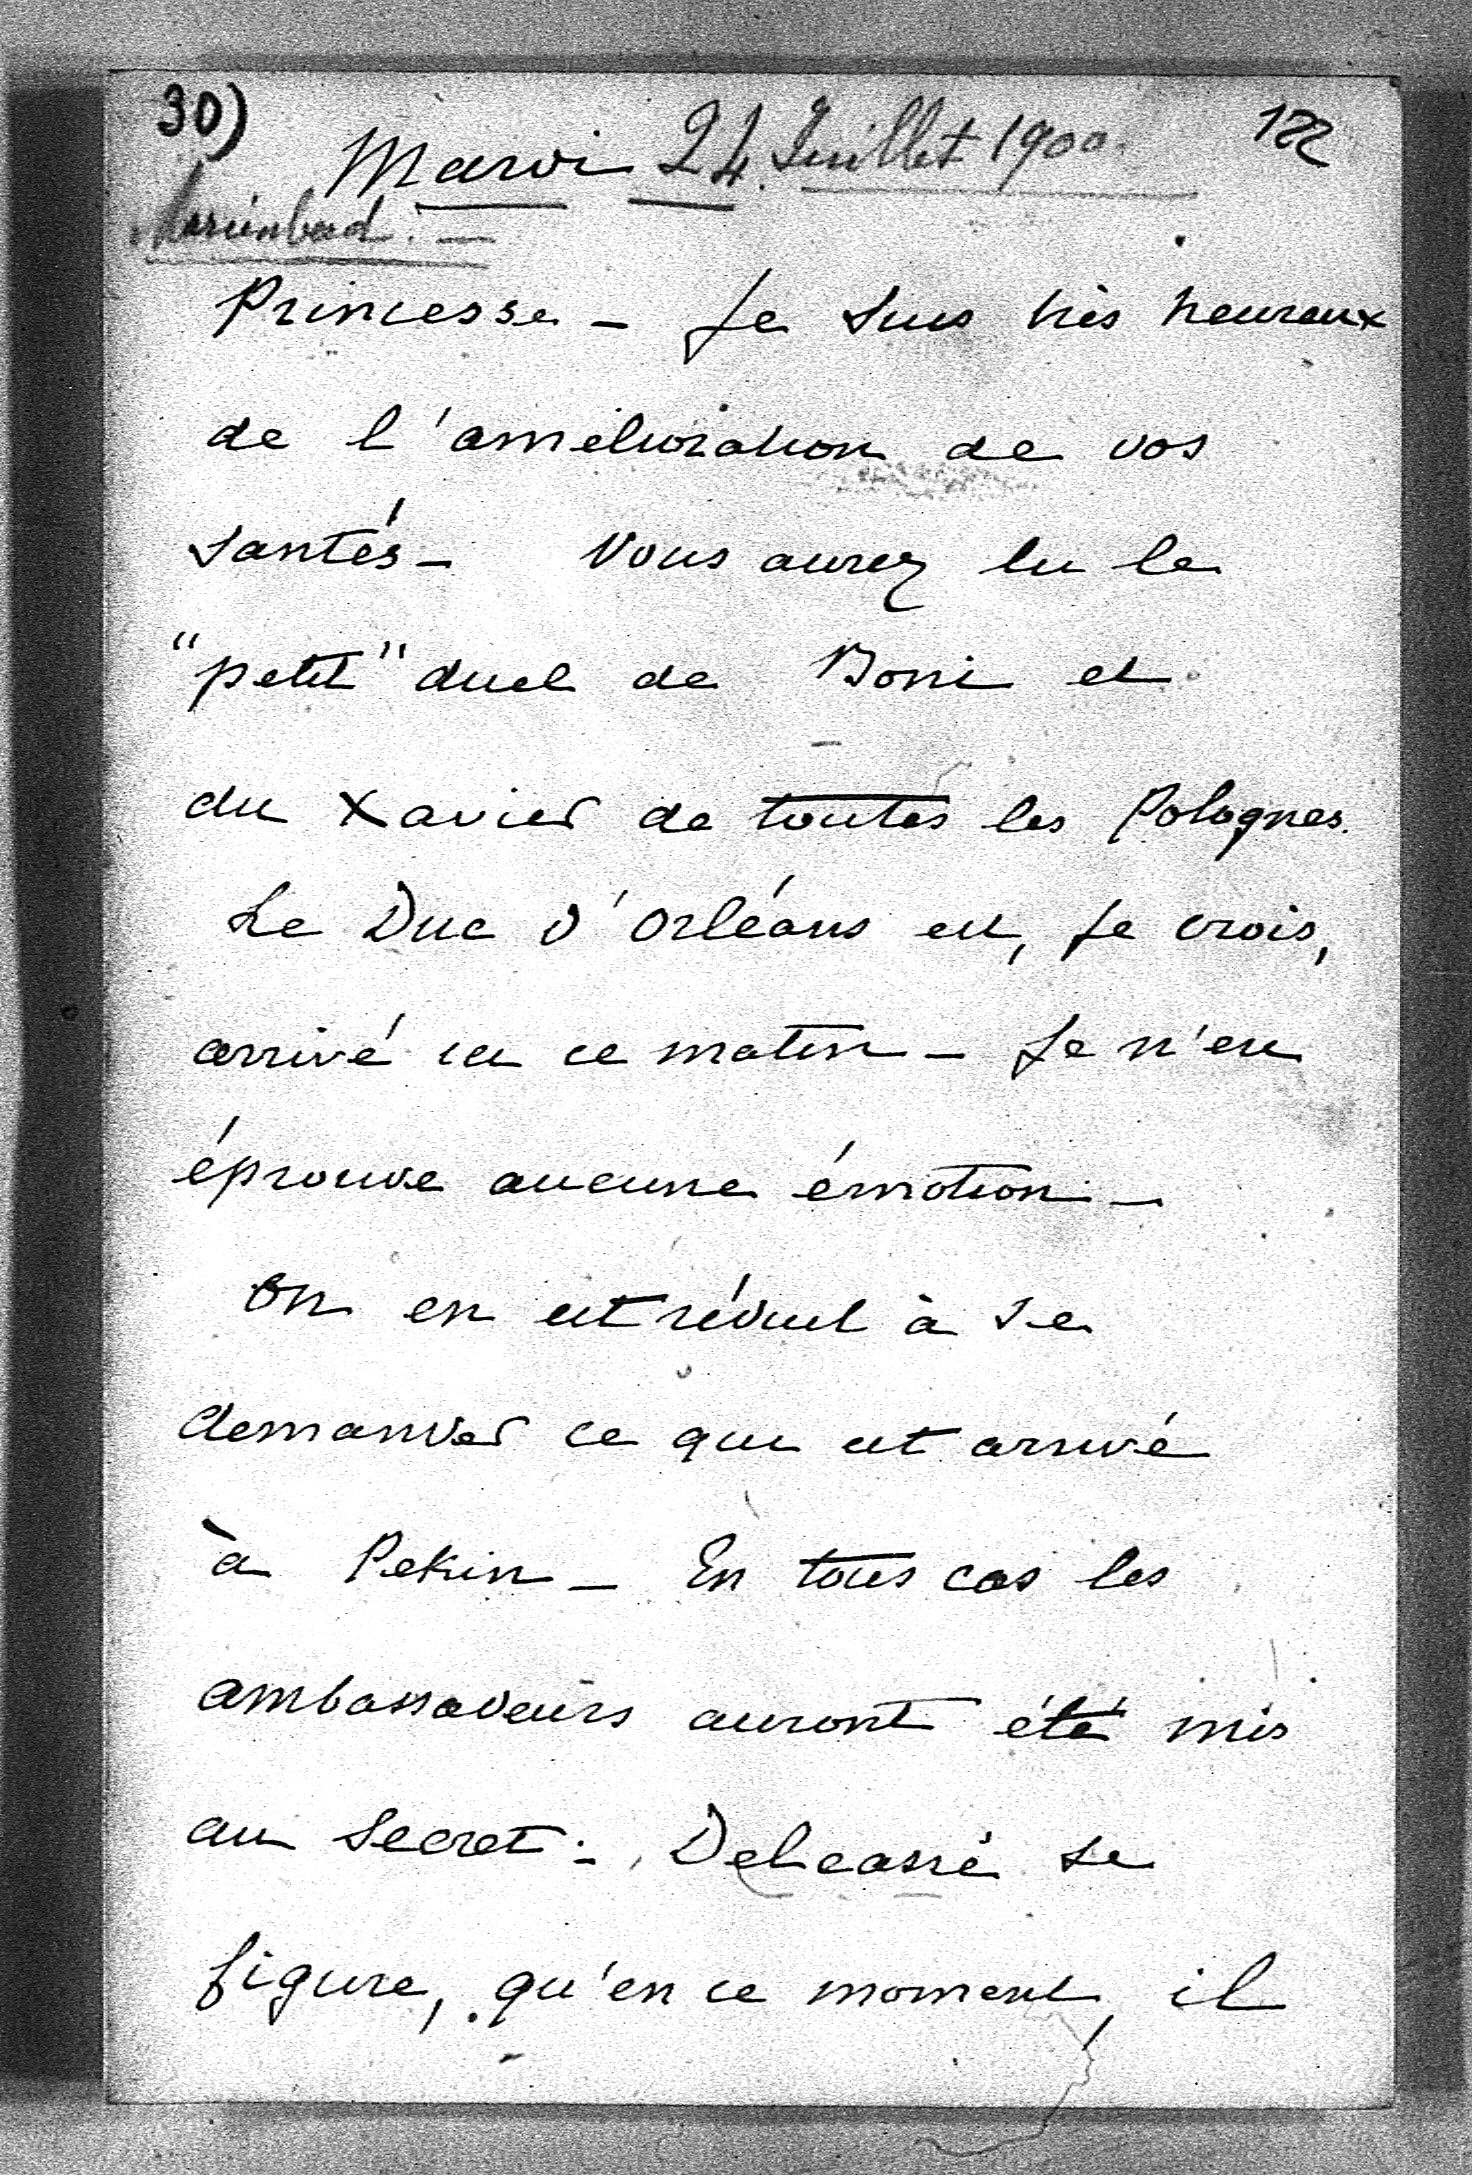 30)
122
Mardi 24 Juillet 1900.
Marienbad. —
Princesse — Je suis très heureux
de l'amélioration de vos
santés — Vous aurez lu le
"petit" duel de Boni et
du Xavier de toutes les Polognes.
Le Duc d'Orléans est, je crois,
arrivé ici ce matin — Je n'en
éprouve aucune émotion —
On en est réduit à se
demander ce qui est arrivé
à Pekin — En tous cas les
ambassadeurs auront été mis
au secret. — Delcassé se
figure, qu'en ce moment, il